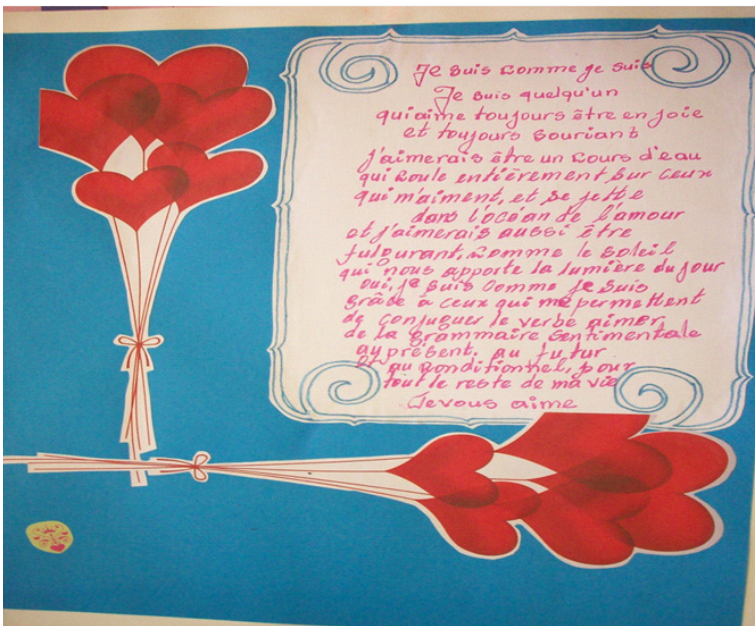 Je suis comme je suis
Je suis quelqu'un
qui aime toujours être en joie
et toujours souriant
j'aimerais être un cours d'eau
qui coule entièrement sur ceux
qui m'aiment, et se jette
dans l'océan de l'amour
et j'aimerais aussi être
fulgurant, comme le soleil
qui nous apporte la lumière du jour
oui, je suis comme je suis
grâce à ceux qui me permettent
de conjuguer le verbe aimer
de la grammaire sentimentale
au présent. au futur
et au conditionnel, pour
tout le reste de ma vie
Je vous aime